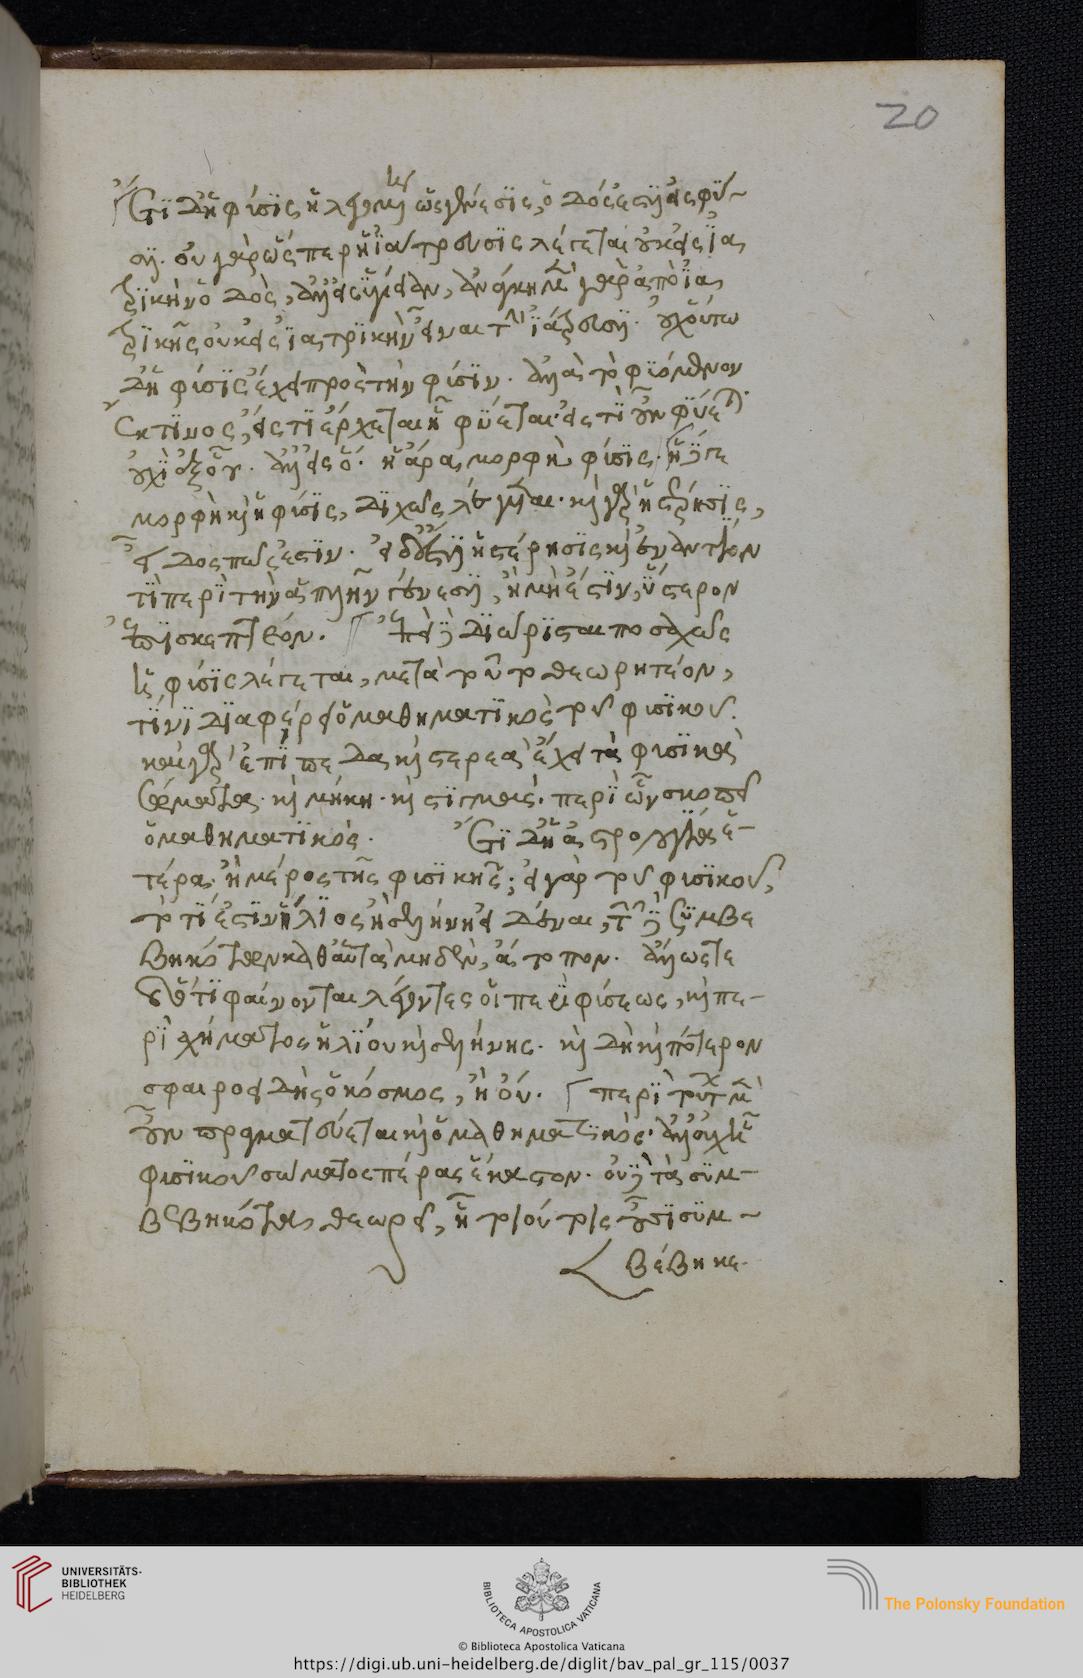 20
Ἔτι δ' ἡ φύσις ἡ λεγομένη ὡς γένεσις, ὁδός ἐστιν εἰς φύ-
σιν. οὐ γὰρ ὥσπερ ἡ ἰάτρευσις λέγεται οὐκ εἰς ἰα
τρικὴν ὁδὸς, ἀλλ' εἰς ὑγίειαν, ἀνάγκη μὲν γὰρ ἀπὸ ἰα
τρικῆς οὐκ εἰς ἰατρικὴν εἶναι τὴν ἰάτρευσιν. οὐχ οὕτω
δ' ἡ φύσις ἔχει πρὸς τὴν φύσιν. ἀλλὰ τὸ φυόμενον
ἔκ τινος, εἴς τι ἔρχεται ᾗ φύεται. εἰς τί οὖν φύεται.
οὐχὶ ἐξ οὗ. ἀλλ' εἰς ὅ. ἡ ἄρα μορφὴ φύσις. ἥ γε
μορφὴ καὶ ἡ φύσις, διχῶς λέγεται. καὶ γὰρ ἡ στέρησις,
εἶδός πώς ἐστιν. εἰ δ' ἔστιν ἡ στέρησις καὶ ἐναντίον
τι περὶ τὴν ἁπλῆν γένεσιν, ἢ μὴ ἔστιν, ὕστερον
ἐπισκεπτέον. Ἐπεὶ δὲ διώρισται ποσαχῶς
ἡ φύσις λέγεται, μετὰ τοῦτο θεωρητέον,
τίνι διαφέρει ὁ μαθηματικὸς τοῦ φυσικοῦ.
καὶ γὰρ ἐπίπεδα καὶ στερεὰ ἔχει τὰ φυσικὰ
σώματα. καὶ μήκη. καὶ στιγμάς. περὶ ὧν σκοπεῖ
ὁ μαθηματικός. Ἔτι δ' ἡ ἀστρολογία ἑ-
τέρα ἢ μέρος τῆς φυσικῆς; εἰ γὰρ τοῦ φυσικοῦ,
τὸ τί ἐστιν ἥλιος ἢ σελήνη εἰδέναι, τῶν δὲ συμβε
βηκότων καθ' αὑτὰ μηδέν, ἄτοπον. ἄλλως τε
καὶ ὅτι φαίνονται λέγοντες οἱ περὶ φύσεως, καὶ πε-
ρὶ σχήματος ἡλίου καὶ σελήνης. καὶ δὴ καὶ πότερον
σφαιροειδὴς ὁ κόσμος, ἢ οὔ. περὶ τούτων μὲν
οὖν πραγματεύεται καὶ ὁ μαθηματικός. ἀλλ' οὐχ ᾗ
φυσικοῦ σώματος πέρας ἕκαστον. οὐδὲ τὰ συμ-
βεβηκότα θεωρεῖ, ᾗ τοιούτοις οὖσι συμ-
βέβηκε.
UNIVERSITÄTS-
BIBLIOTHEK
HEIDELBERG
BIBLIOTECA APOSTOLICA VATICANA
The Polonsky Foundation
© Biblioteca Apostolica Vaticana
https://digi.ub.uni-heidelberg.de/diglit/bav_pal_gr_115/0037